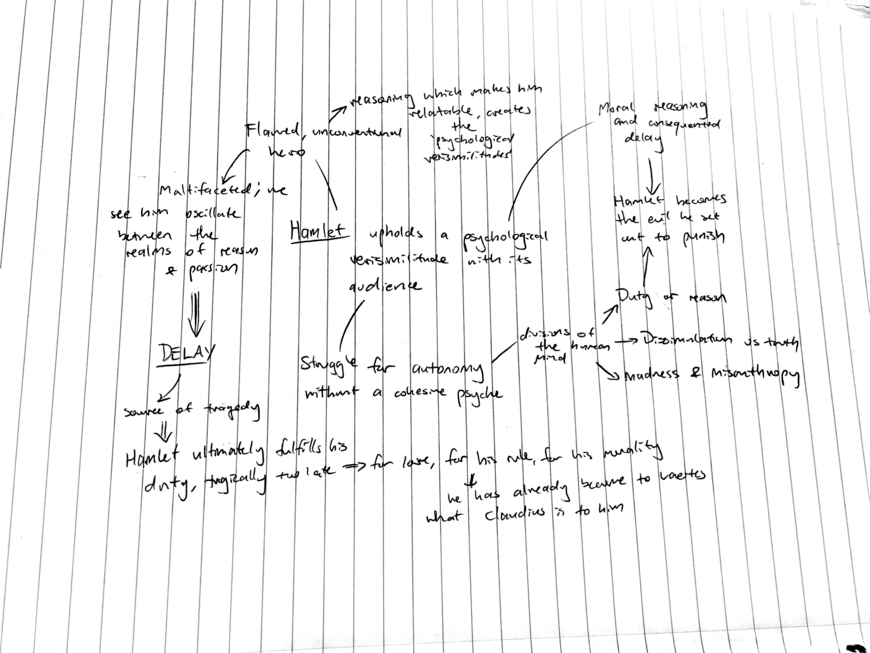 reasoning which makes him
relatable, creates
the
psychological
verisimilitudes
Flawed, unconventional
hero
Moral reasoning
and consequented
delay
Multifaceted; we
see him oscillate
between the
realms of reason
& passion
Hamlet becomes
the evil he set
out to punish
Hamlet upholds a psychological
verisimilitude with its
audience
Duty or reason
divisions of
the human
mind
Dissimulation vs truth
madness & misanthropy
DELAY
Struggle for autonomy
without a cohesive psyche
source of tragedy
Hamlet ultimately fulfills his
duty, tragically too late => for love, for his rule, for his morality
he has already became to Laertes
what Claudius is to him